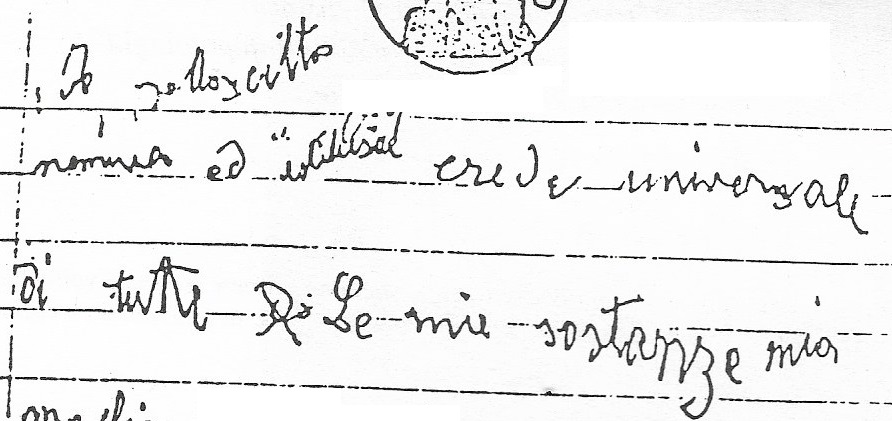 Io sottoscritto
nomina ed erede universale
di tutte Le mie sostanze mia